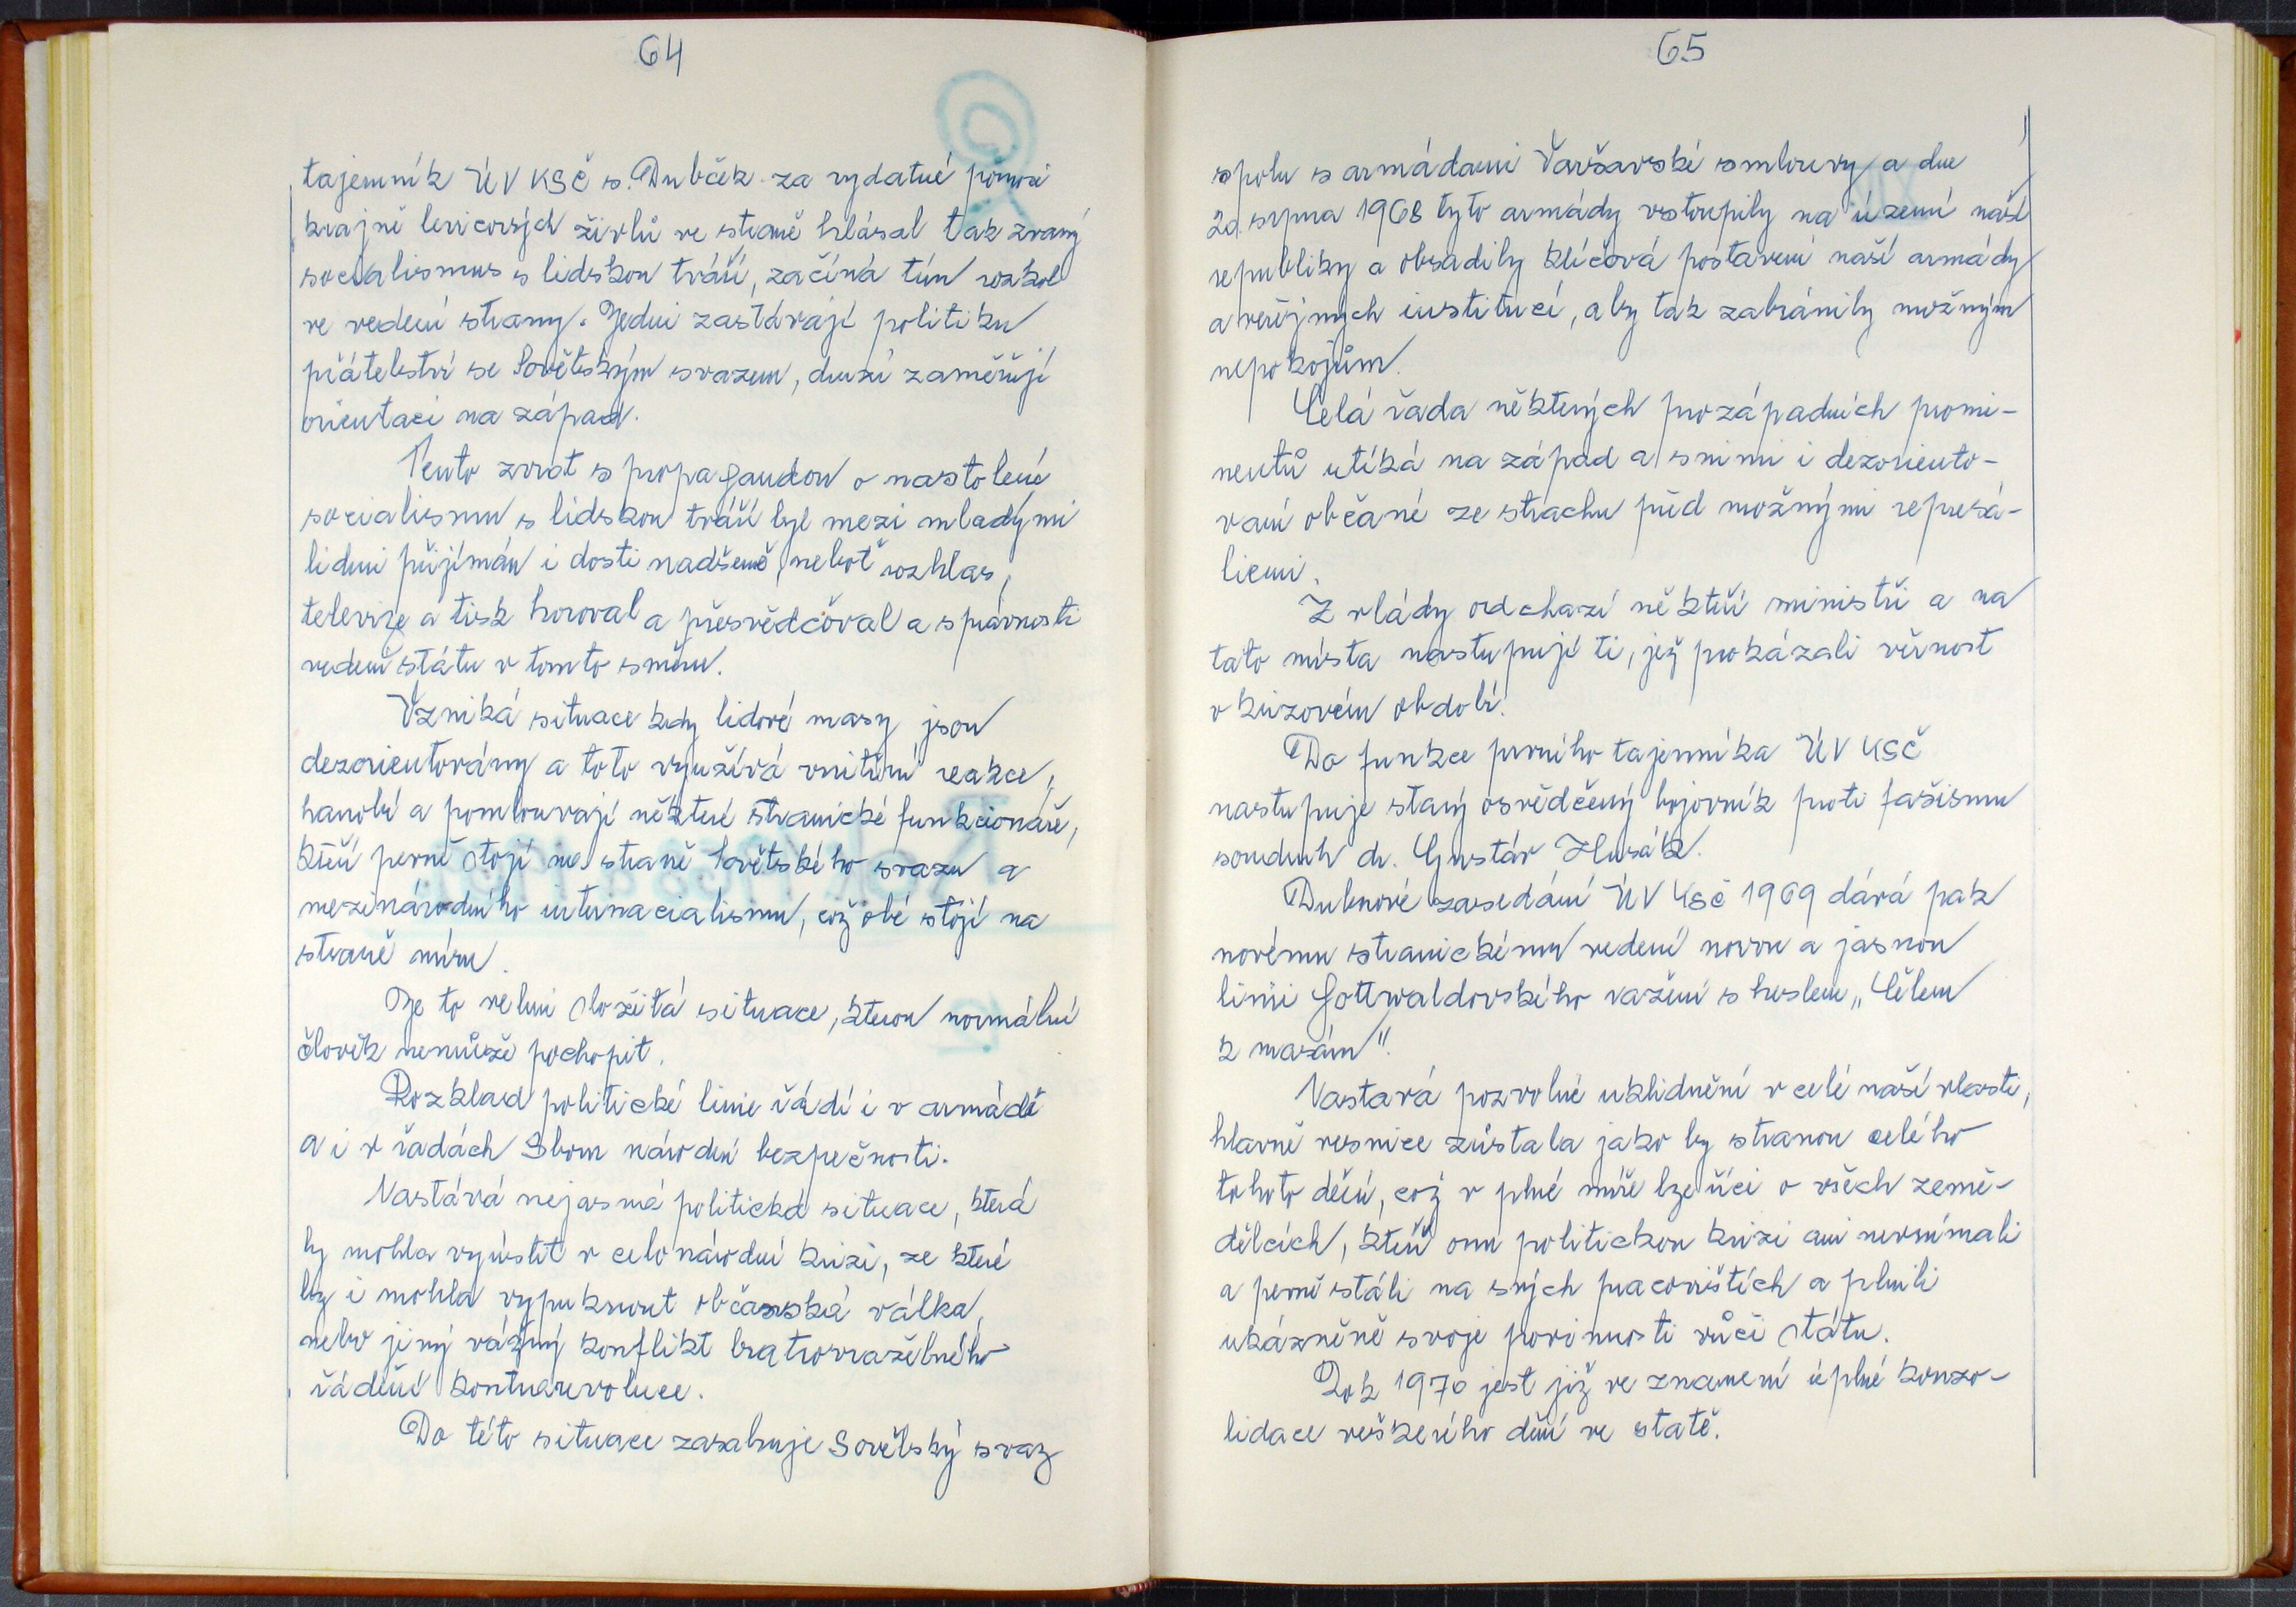 64
tajemník ÚV KSČ s. Dubček za vydatné pomoci
krajně levicových živlů ve straně hlásal tak zvaný
socialismus s lidskou tváří, začíná tím rozkol
ve vedení strany. Jedni zastávají politiku
přátelství se Sovětským svazem, druzí zaměřují
orientaci na západ.
Tento zvrat s propagandou o nastolení
socialismu s lidskou tváří byl mezi mladými
lidmi přijímán i dosti nadšeně, neboť rozhlas,
televize a tisk horoval a přesvědčoval a správnosti
vedení státu v tomto směru.
Vzniká situace kdy lidové masy jsou
dezorientovány a toto využívá vnitřní reakce,
hanobí a pomlouvají některé stranické funkcionáře,
kteří pevně stojí na straně Sovětského svazu a
mezinárodního internacialismu, což obé stojí na
straně míru.
Je to velmi složitá situace, kterou normální
člověk nemůže pochopit.
Rozklad politické linie řádí i v armádě
a i v řadách Sboru národní bezpečnosti.
Nastává nejasná politická situace, která
by mohla vyústit v celonárodní krizi, ze které
by i mohla vypuknout občanská válka,
nebo jiný vážný konflikt bratrovražebného
řádění kontrarevoluce.
Do této situace zasahuje Sovětský svaz
65
spolu s armádami Varšavské smlouvy a dne
20. srpna 1968 tyto armády vstoupily na území naší
republiky a obsadily klíčová postavení naší armády
a veřejných institucí, aby tak zabránily možným
nepokojům.
Celá řada některých prozápadních promi-
nentů utíká na západ a s nimi i dezoriento-
vaní občané ze strachu před možnými represá-
liemi.
Z vlády odchází někteří ministři a na
tato místa nastupují ti, jež prokázali věrnost
v krizovém období.
Do funkce prvního tajemníka ÚV KSČ
nastupuje starý osvědčený bojovník proti fašismu
soudruh dr. Gustáv Husák.
Dubnové zasedání ÚV KSČ 1969 dává pak
novému stranickému vedení novou a jasnou
linii Gottwaldovského ražení s heslem „Čelem
k masám".
Nastává pozvolné uklidnění v celé naší vlasti,
hlavně vesnice zůstala jako by stranou celého
tohoto dění, což v plné míře lze říci o všech země-
dělcích, kteří onu politickou krizi ani nevnímali
a pevně stáli na svých pracovištích a plnili
ukázněně svoje povinnosti vůči státu.
Rok 1970 jest již ve znamení úplné konzo-
lidace veškerého dění ve statě.